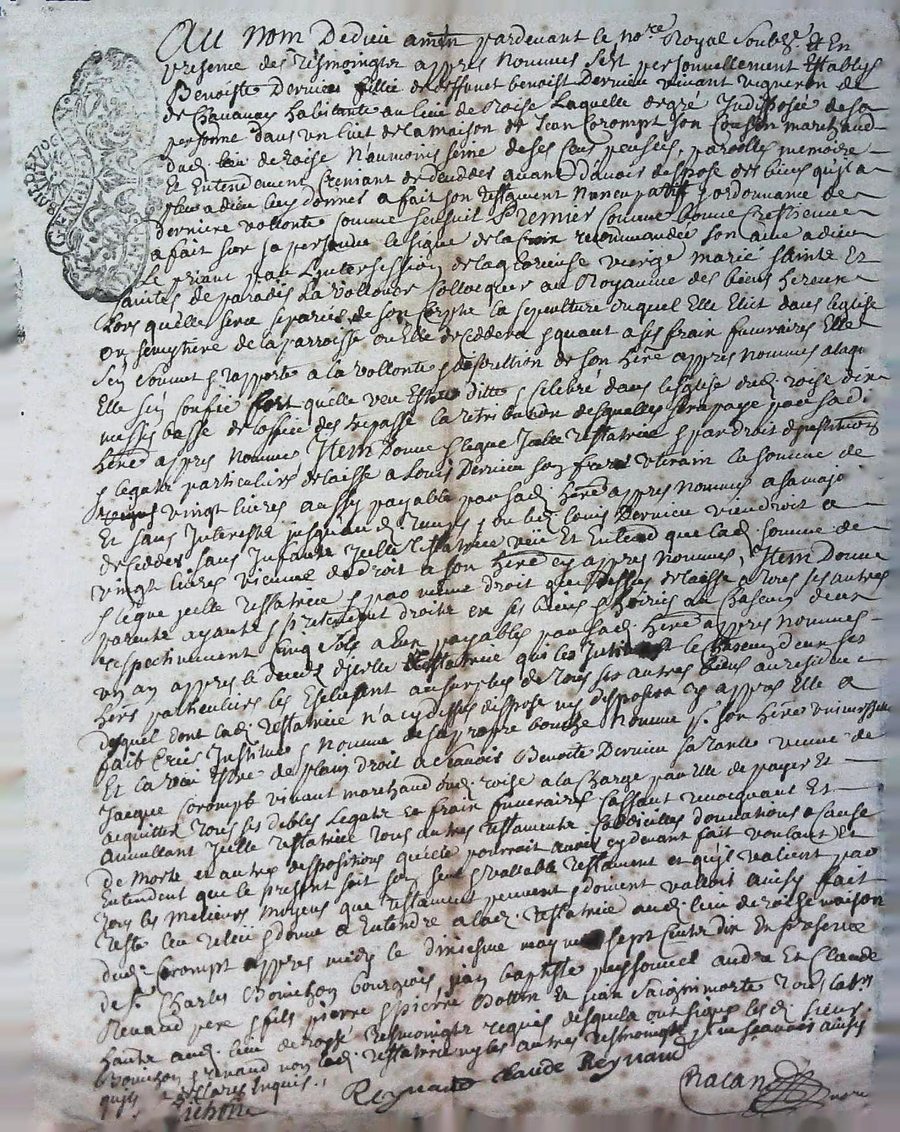 Au nom De dieu amen pardevant le no.re Royal soubz.é Et En
presence des tesmoingtz appres nommes sest personnellement Establys
Benoiste Dervieu fillie de deffunct benoist Dervieu vivant vigneron de
de Chavanay habitante au lieu de Roise Laquelle de gré Indisposée de sa
personne dans un lict de la maison de Jean Corompt son Cousin marchand
dud. lieu de roise Naumoins seine de ses sens pensées parolles memoire
Et Entendement Creniant de deceddes quant d'avoir dispose des biens qu'il a
pleu a dieu luy donner a fait son testament Nuncupatif ordonnance de
derniere vollonte comme sensuit Premier comme bonne chrestienne
a fait sur sa personne le signe de la Croix recommandée son ame a dieu
Le priant par L'intersession de la glorieuse vierge marie saintz Et
saintes de paradis La volloir collocquer au Royaume des biens hereux
Lors quelle sera separée de son corps la sepulture duquel Elle Elict dans leglise
ou semestiere de la parroisse ou Elle decedera quant a ses frais funeraires Elle
sen soumet rapporte a la vollonte discrettion de son hére appres nommes a laqu
Elle sen confie quelle veu Estre dittes selebré dans leglise dud. roise dix
messes basse de loffice des trepassé la retribution desquelles sera paye par sad.
hére appres nommes Item Donne Legue Jcelle testatrice par droit dinstitution
legatz particuliers delaisse a Louis Dervieu son frere uterain la somme de
vingt livres aussy payable par sad. hére appres nommes a sa majo
Et sans Interestz jusques ou led. Louis Dervieu viendroit a
deceddes sans Enfantz Jcelle testatrice veu Et Entend que lad. somme de
vingt livres vienne de droit a son hére cy appres nommes, Item Donne
Legue Jcelle testatrice par meme droit que dessus delaisse a tous ses autres
parents ayantz pretendant droitz en ses biens hoiries au chascun deux
respectivement Cinq sols a Eux payables par sad. hére appres nommes
un an appres le deceds d'icelle testatrice qui les Institue le chascun deux ses
hérs particuliers les Excluant au surplus de tous ses autres biens au residue
desquel dont lad. testatrice n'a cy dessus dispose ny disposera cy appres Elle a
fait Crée Institue Nomme de sa propre bouche nomme p.r son hére universelle
Et la veu Estre de plain droit a scavoir Benoite Dervieu sa tante veuve de
Jacque Corompt vivant marchand dud. roise a la charge par Elle de payer Et
acquitter tous ses debtes Legatz et frais funeraires Cassant revocquant Et
annullant Jcelle testatrice tous autres testaments Codicilles donnations a cause
De Morts et autres dispositions qu'elle pourroit avoir cy devant fait voulant et
Entendent que le present soit son seul vallable testament et qu'il valient par
tous les meilieurs moyens que testament peuvent doivent valloir ainsy fait
testé leu releu donne a Entendre a lad. testatrice aud. lieu de roise maison
dud. Corompt appres midy le dixiesme may sept centz dix En presence
de S.r Charles Bonichon bourgeois Jean baptiste peyssonnel André Et Claude
Renaud pere fils pierre pierre Bollon Et jean Jacquemorte tous labrs
hantz aud. lieu de rosé tesmoingtz requis desquels ont signes les d. sieurs
Bonichon Renaud non lad. testatrice ny les autres tesmoingtz p.r ne scavoir ainsy
quilz declares Enquis.
Reynaud Claude Reynaud